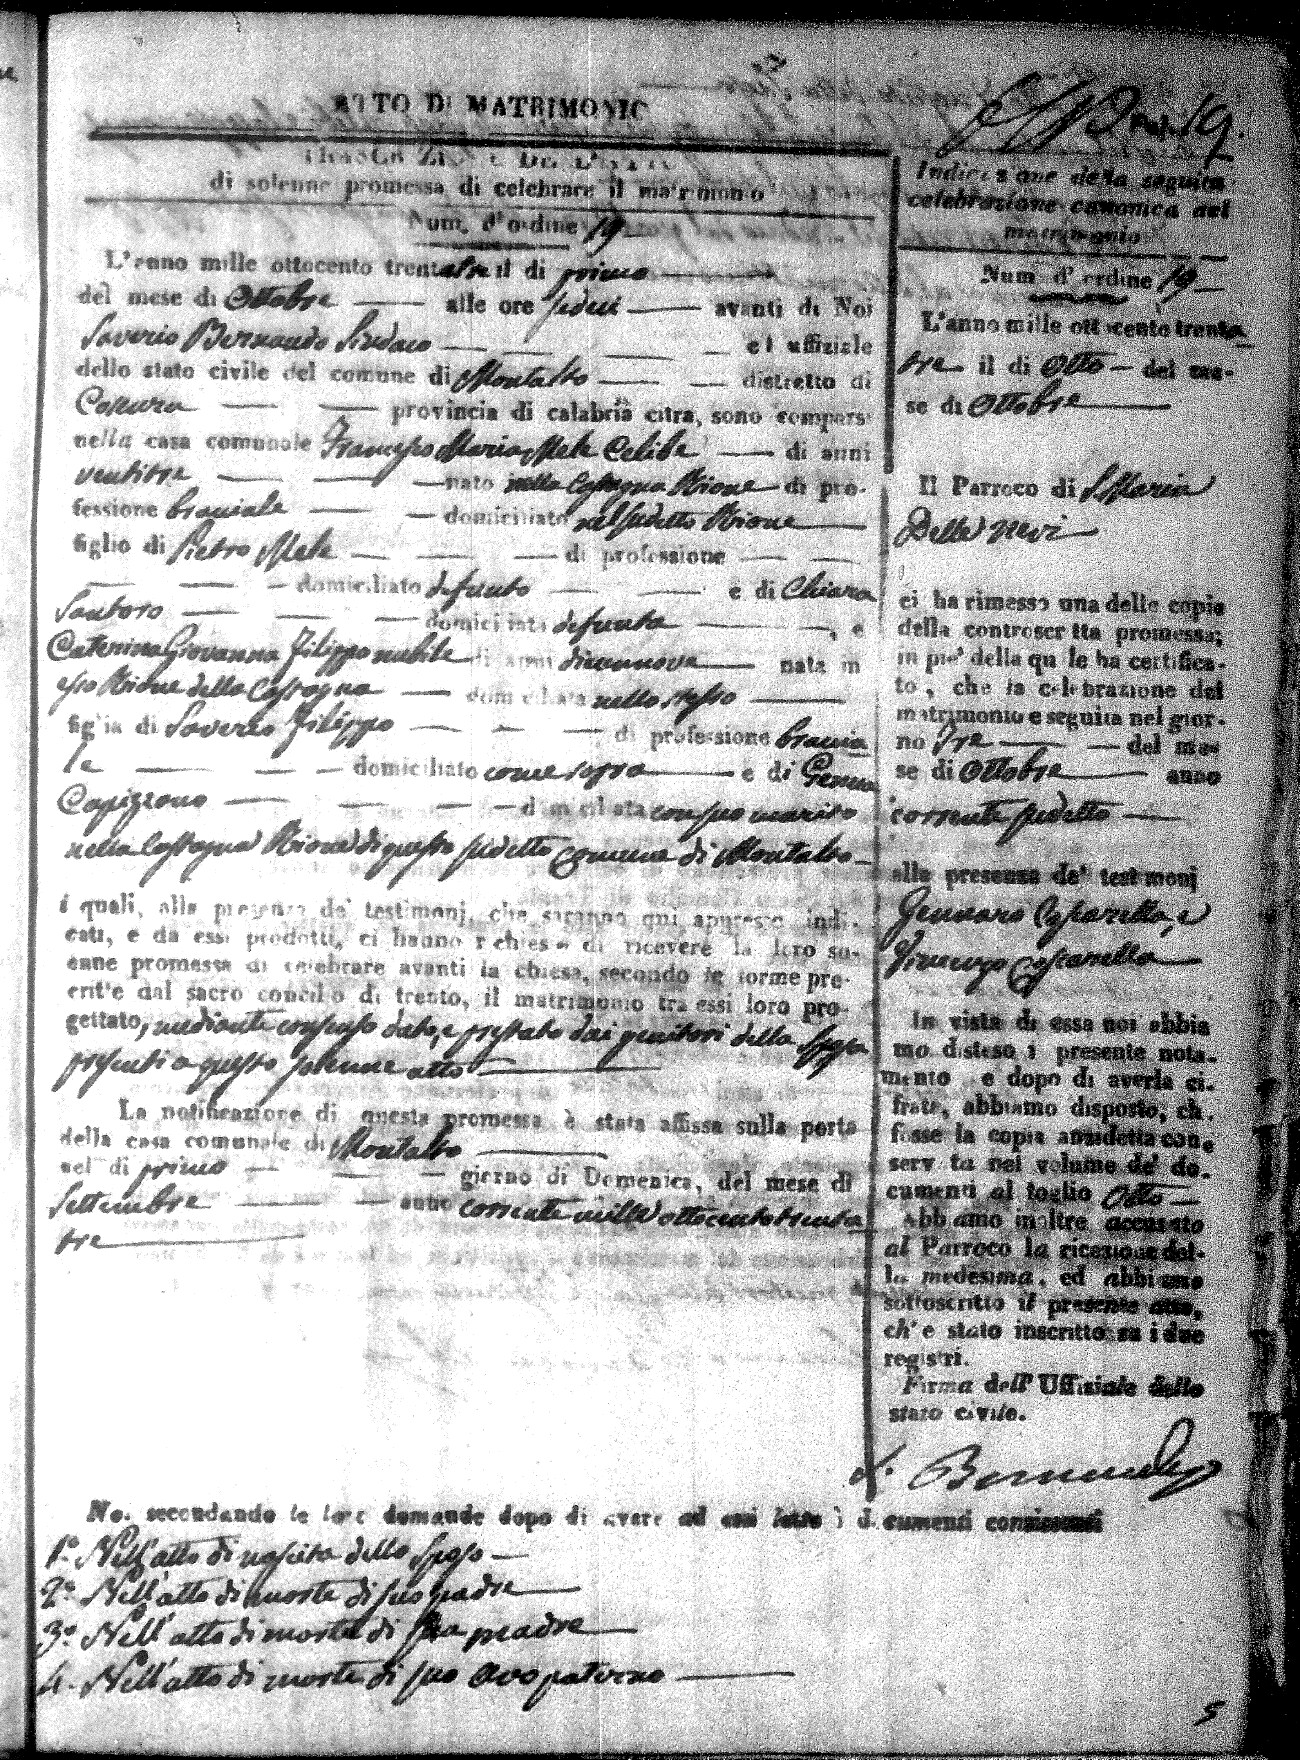 ATTO DI MATRIMONIO
di solenne promessa di celebrare il matrimonio
Num. d'ordine 19
L'anno mille ottocento trentatre il di primo
del mese di Ottobre alle ore sedici avanti di Noi
Saverio Bernardo Sindaco ed uffiziale
dello stato civile del comune di Montalto distretto di
Cosenza provincia di calabria citra, sono compars
nella casa comunale Francesco Maria Mele Celibe di anni
ventitre nato nella Castagna Rione di pro-
fessione bracciale domiciliato nel sudetto Rione
figlio di Pietro Mele di professione
domiciliato defunto e di Chiara
Santoro domiciliata defunta, e
Caterina Giovanna Filippo nubile di anni diecinnove nata in
esso Rione della Castagna domiciliata nello stesso
figlia di Saverio Filippo di professione braccia
le domiciliato come sopra e di Gemma
Capizzano domiciliata con suo marito
nella Castagna Rione di questo sudetto Comune di Montalto
i quali, alla presenza de' testimonj, che saranno qui appresso indi-
cati, e da essi prodotti, ci hanno richiesto di ricevere la loro so-
enne promessa di celebrare avanti la chiesa, secondo le forme pre-
critte dal sacro concilio di trento, il matrimonio tra essi loro pro-
gettato, mediante consenso dato, e prestato dai genitori della Sposa
presenti a questo solenne atto
La notificazione di questa promessa è stata affissa sulla porta
della casa comunale di Montalto
nel di primo giorno di Domenica, del mese di
Settembre anno corrente mille ottocento trenta
tre
No. secondando le loro domande dopo di avere ad essi letto i documenti consistenti
1.º Nell'atto di nascita dello Sposo
2.º Nell'atto di morte di suo padre
3.º Nell'atto di morte di sua madre
4. Nell'atto di morte di suo avo paterno
19.
Indicazione della seguita
celebrazione canonica del
matrimonio
Num. d'ordine 19
L'anno mille ottocento trenta
tre il di Otto del me-
se di Ottobre
Il Parroco di S. Maria
Delle nevi
ci ha rimesso una delle copie
della controscritta promessa;
in pie' della quale ha certifica-
to, che la celebrazione del
matrimonio e seguita nel gior-
no Tre del me-
se di Ottobre anno
corrente sudetto
alla presenza de' testimonj
Gennaro Caparella, e
In vista di essa noi abbia
mo disteso il presente nota-
mento, e dopo di averla ci-
frata, abbiamo disposto, ch,
fosse la copia anzidetta con
servata nel volume de' do-
cumenti al foglio Otto
Abbiamo inoltre accusato
al Parroco la ricezione del-
la medesima, ed abbiamo
sottoscritto il presente atto,
ch'e stato inscritto su i due
registri.
Firma dell'Uffiziale dello
stato civile.
S. Bernardo
5